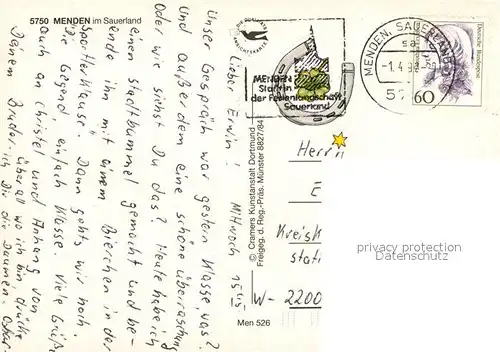 5750 MENDEN im Sauerland
Lieber Erwin!
Mittwoch
Unser Gespräch war gestern Klasse, was?
Und außerdem eine schöne Überraschung
Oder wie siehst Du das? Heute habe ich
einen Stadtbummel gemacht und be-
ende ihn mit einem Bierchen in der
"Sportlerklause". Dann gehts wir noch.
Die Gegend einfach Klasse. Viele Grüße
auch an Christel und Anhang von
Deinem Bruder.
Überall wo ich bin, drücke
ich Dir die Daumen. Oskar
© Cramers Kunstanstalt Dortmund
Freigeg. d. Reg.-Präs. Münster 8827/84
Men 526
MENDEN
Stadt in
der Ferienlandschaft
Sauerland
MENDEN, SAUERLAND
sa
-1.4.9
60
Deutsche Bundespost
Herrn
E
Kreisk
stati
W-2200
privacy protection
Datenschutz